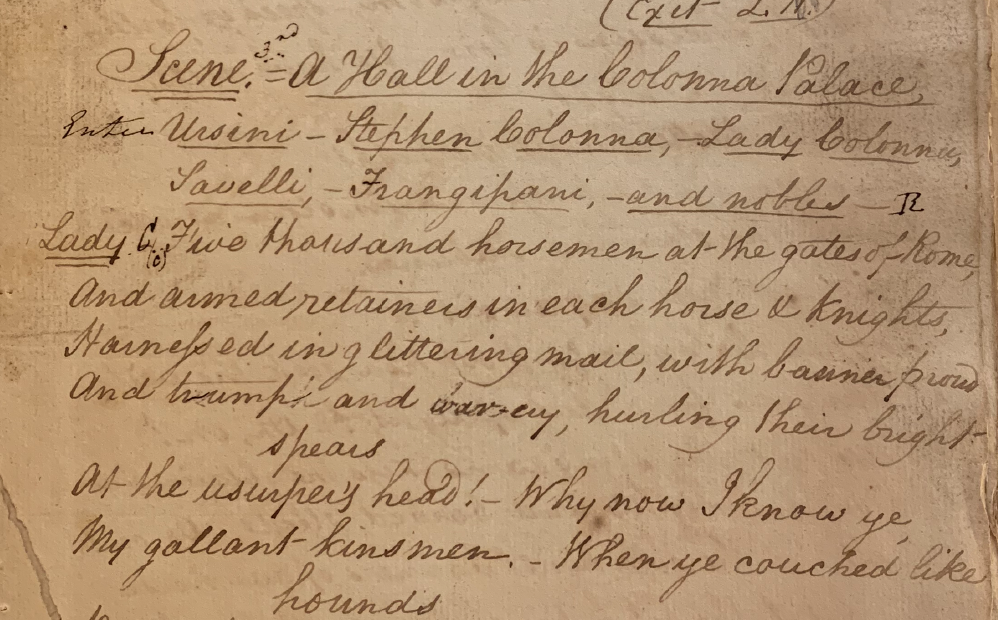 (Exit L. H.)
Scene. 3rd = A Hall in the Colonna Palace,
Enter Ursini – Stephen Colonna, – Lady Colonna,
Savelli, – Frangipani, – and nobles – R
Lady C. (c) Five thousand horsemen at the gates of Rome,
And armed retainers in each horse & Knights,
Harnessed in glittering mail, with banner proud
And trump and war-cry, hurling their bright
spears
At the usurper's head! – Why now I know ye,
My gallant kinsmen. – When ye couched like
hounds